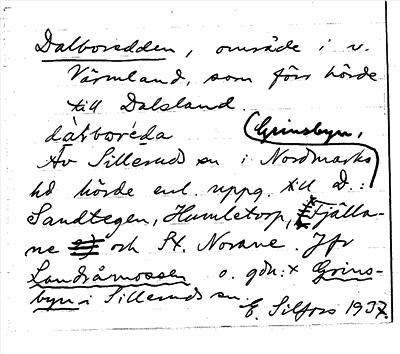 Dalboredden, område i v.
Värmland, som förr hörde
till Dalsland.
dàɫboréda
(Grinsbyn,
Av Sillerud sn i Nordmarks
hd hörde enl. uppg. till D.:
Sandtegen, Humletorp, Fjälla-
ne och St. Norane. Jfr
Landråmossen o. gdn: x Grins-
byn i Sillerud sn.
E. Silfors 1937.